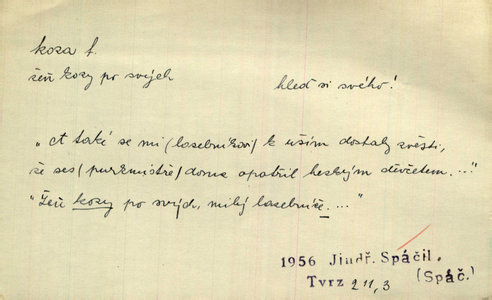 koza f.
žeň kozy po svých
hleď si svého!
„A také se mi (lasebníkovi) k uším dostaly zvěsti,
že ses (purkmistře) doma opatřil hezkým děvčetem. ..."
"Žeň kozy po svých, milý lasebníče. ..."
1956 Jindř. Spáčil.
(Spáč.)
Tvrz 211,3